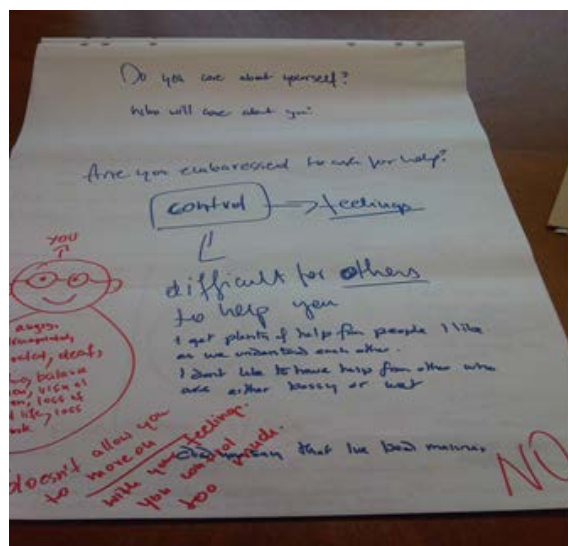 Do you care about yourself?
who will care about you?
Are you embaressed to ask for help?
control → feelings
YOU
difficult for others
to help you
I get plenty of help from people I like
as we understand each other.
I don't like to have help from other who
are either bossy or wet
angry,
deaf,
balance
loss of
life, loss
doesn't allow you
to move on
with your feelings.
you control
too much.
that I've bad manners
NO